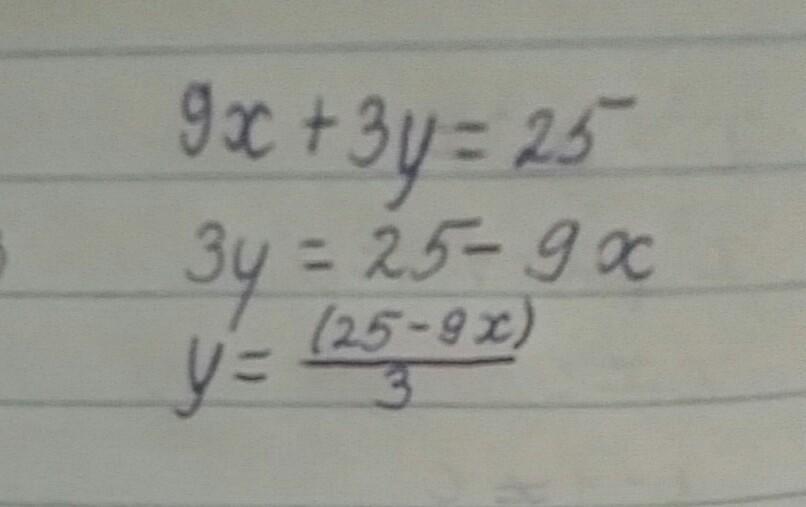 9x + 3y = 25
3y = 25 - 9x
y = (25-9x)/3